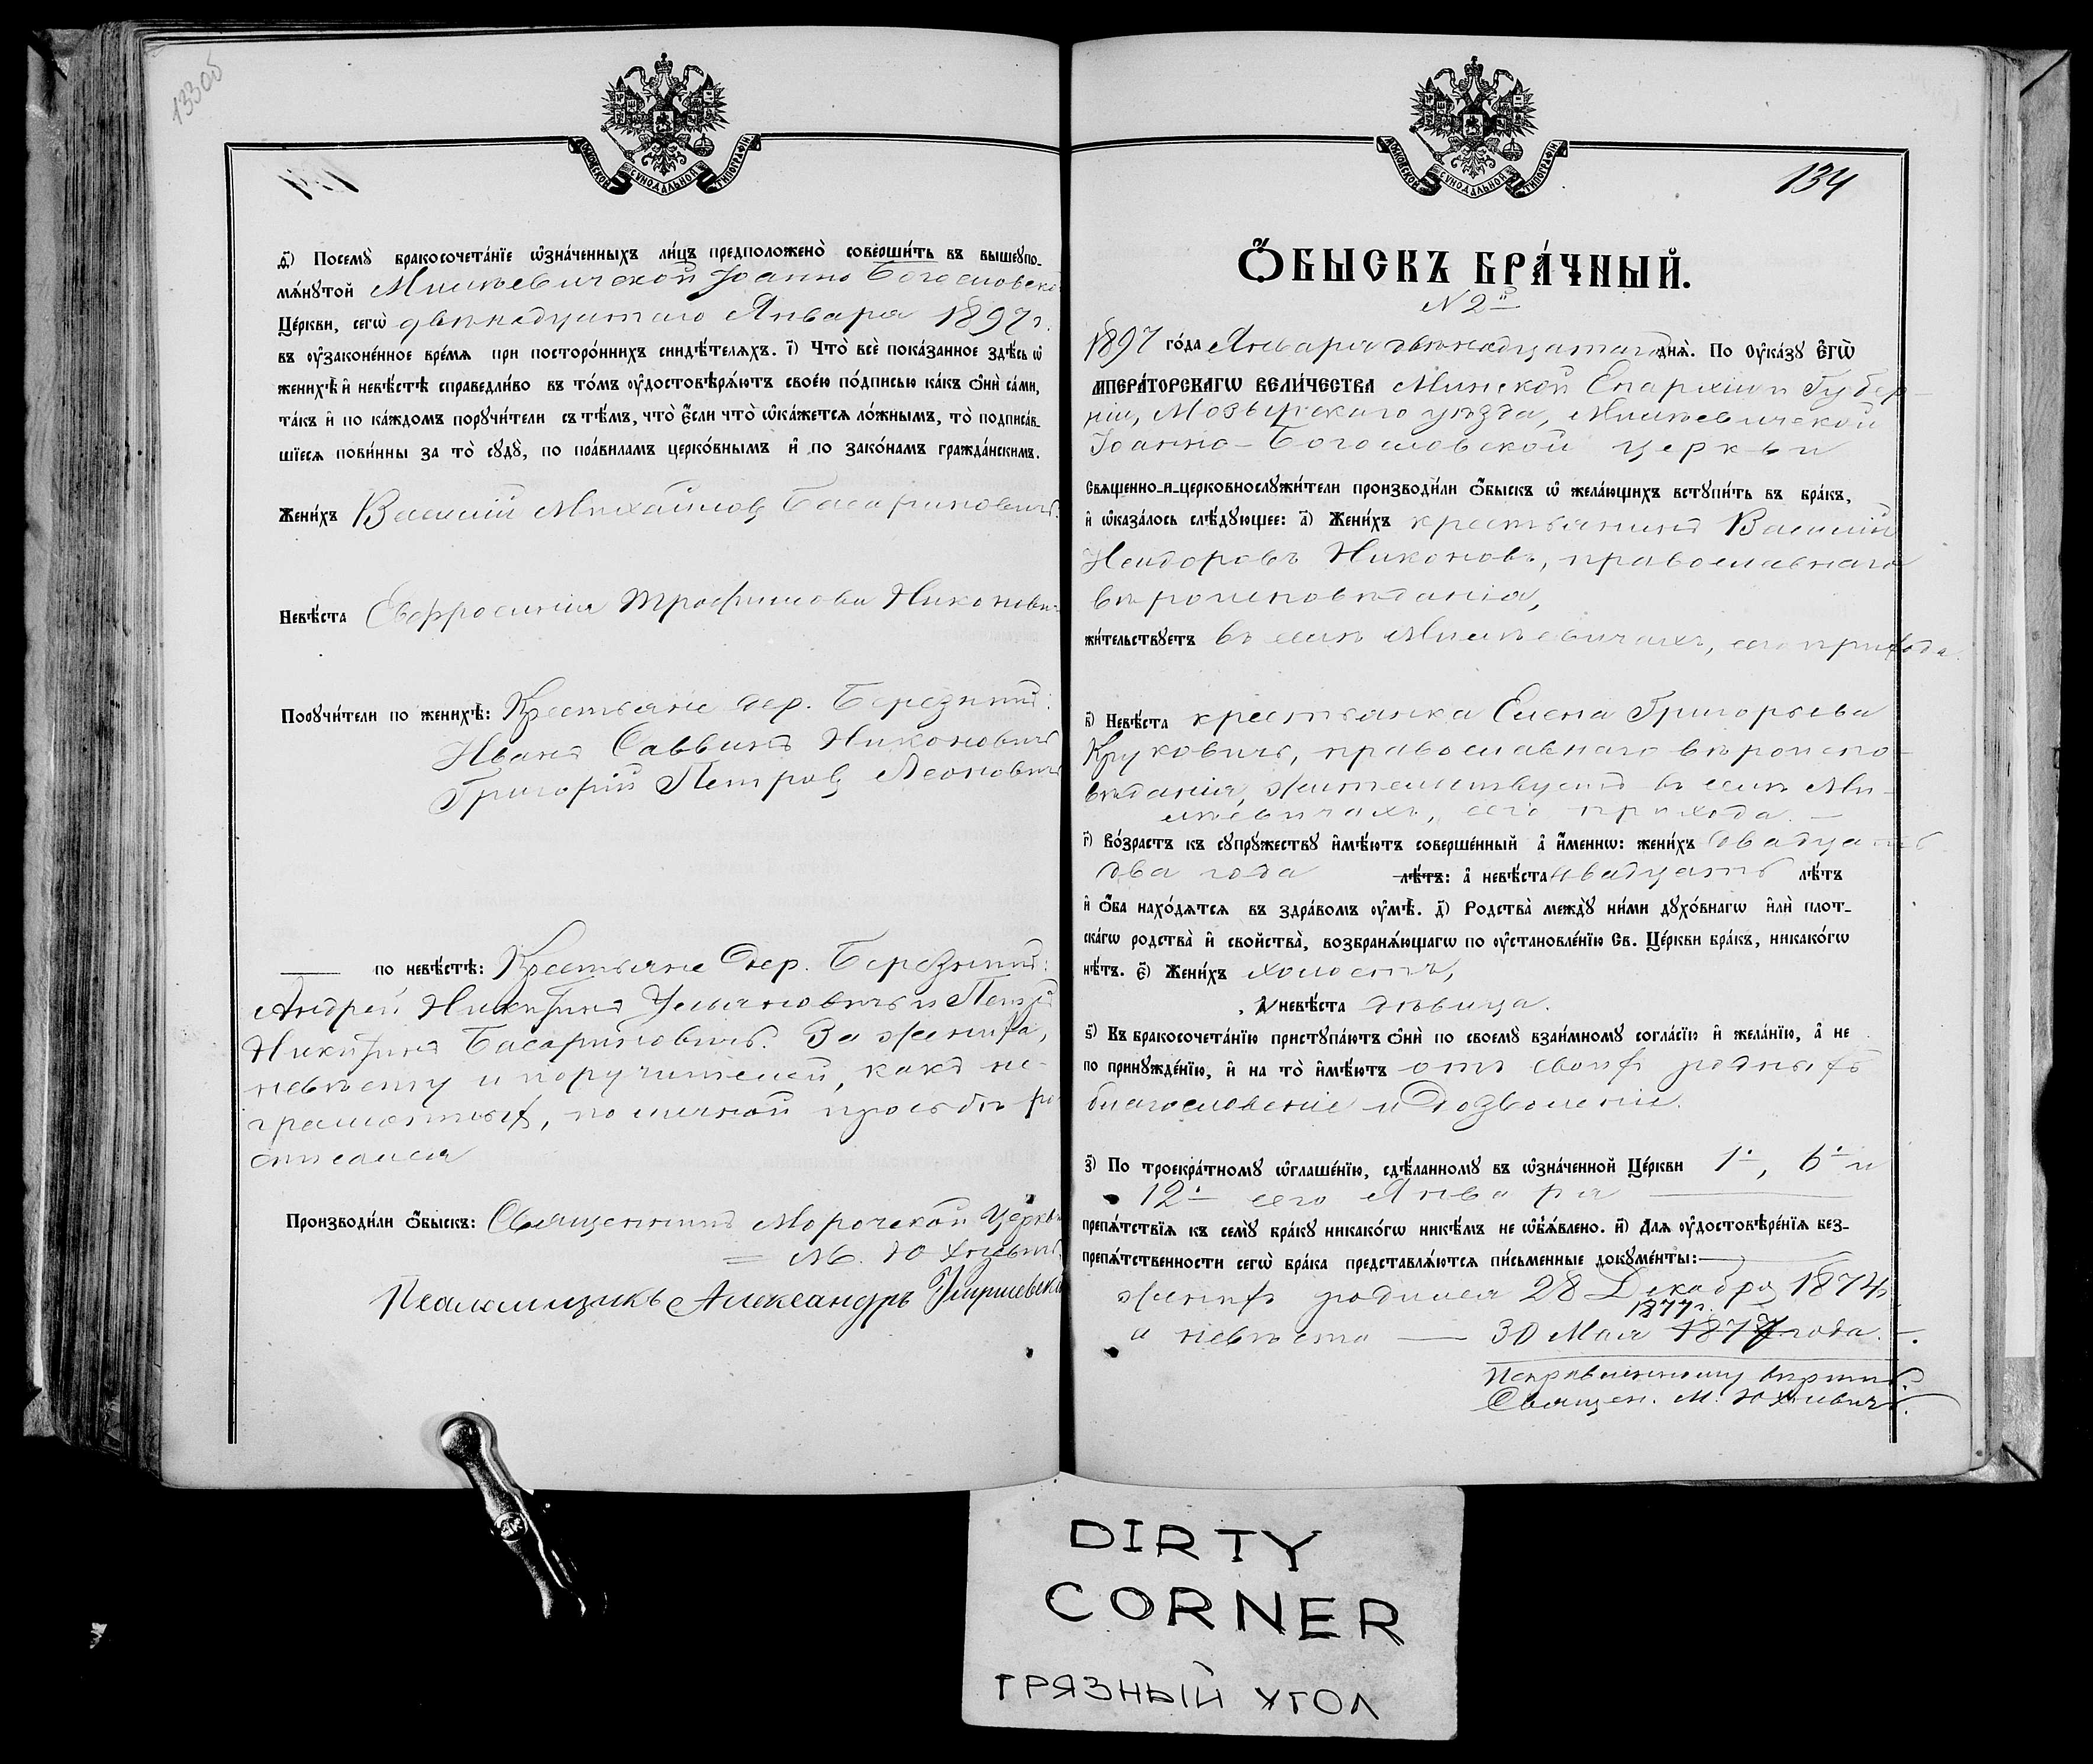 133об
МОСКОВСКОЙ СѴНОДАЛЬНОЙ ТИПОГРАФІИ.
д҃) Посемꙋ̀ бракосочета́нїе ѡ҆зна́ченныхъ ли́цъ предположено̀ соверши́ть въ вышеꙋпо-
мѧ́нꙋтой Милевичской Іоанно Богословской
Це́ркви, сегѡ̀ двѣнадцатаго Января 1897 г.
въ ᲂу҆законе́нное вре́мѧ при посторо́ннихъ свидѣ́телѧхъ. і҃) Что̀ всѐ пока́занное здѣ́сь ѡ҆
женихѣ̀ и҆ невѣ́стѣ справедли́во въ то́мъ ᲂу҆достовѣрѧ́ютъ свое́ю по́дписью ка́къ ѻ҆нѝ са́ми,
та́къ и҆ по ка́ждомъ порꙋчи́тели съ тѣ́мъ, что̀ є҆́сли что̀ ѡ҆ка́жетсѧ ло́жнымъ, то̀ подписа́в-
шїесѧ пови́нны за то̀ сꙋдꙋ̀, по пра́виламъ церко́внымъ и҆ по зако́намъ гражда́нскимъ.
Жени́хъ Василій Михайловъ Басариновичъ.
Невѣ́ста Евфросинія Трофимова Никонович
Порꙋчи́тели по женихѣ̀: Крестьяне дер. Березнит:
Иванъ Саввинъ Никоновичъ
Григорій Петровъ Леоновичъ
по невѣ́стѣ: Крестьяне Дер. Березнит:
Андрей Никитинъ Ульяновичъ и Петръ
Никитинъ Басариновичъ. За жениха,
невѣсту и поручителей, какъ не-
грамотныхъ, по личной просьбѣ рос
списался
Производи́ли ѻ҆́быскъ: Священникъ Морочской Церкви
М. Юхневичъ.
Псаломщикъ Александръ
134
МОСКОВСКОЙ СѴНОДАЛЬНОЙ ТИПОГРАФІИ.
Ѻ҆́БЫСКЪ БРА́ЧНЫЙ.
N 2й
1897 го́да Января двѣнадцатаго днѧ̀. По ᲂу҆ка́зꙋ Є҆ГѠ̀
ИМПЕРА́ТОРСКАГѠ ВЕЛИ́ЧЕСТВА Минской Епархіи и Губер-
ніи, Мозырскаго уѣзда, Милевичской
Іоанно-Богословской церкви
Свѧще́нно-и-церковнослꙋжи́тели производи́ли ѻ҆́быскъ ѡ҆ жела́ющихъ встꙋпи́ть въ бра́къ,
и҆ ѡ҆каза́лось слѣ́дꙋющее: а҃) Жени́хъ крестьянинъ Василій
Никоновъ, православнаго
вѣроисповѣданія,
жи́тельствꙋетъ въ селѣ Милевичахъ, сего прихода.
в҃) Невѣ́ста крестьянка Елена Григорьева
Круковичъ, православнаго вѣроиспо-
вѣданія, жительствуетъ въ селѣ Ми-
левичахъ, сего прихода. —
г҃) Во́зрастъ къ сꙋпрꙋ́жествꙋ и҆мѣ́ютъ соверше́нный а҆ и҆́меннѡ: жени́хъ двадцать
два года лѣ́тъ: а҆ невѣ́ста двадцать лѣ́тъ
и҆ ѻ҆́ба нахо́дѧтсѧ въ здра́вомъ ᲂу҆мѣ̀. д҃) Родства̀ междꙋ̀ ни́ми дꙋхо́внагѡ и҆лѝ плот-
ска́гѡ родства̀ и҆ сво́йства̀, возбранѧ́ющагѡ по ᲂу҆становле́нїю Св. Це́ркви бра́къ, никако́гѡ
нѣ́тъ. є҃) Жени́хъ холостъ,
а҆ невѣ́ста дѣвица.
ѕ҃) Въ бракосочета́нїю пристꙋпа́ютъ ѻ҆нѝ по своемꙋ̀ взаи́мномꙋ согла́сїю и҆ жела́нїю, а҆ не
по принꙋжде́нїю, и҆ на то̀ и҆мѣ́ютъ отъ своихъ родныхъ
благословеніе и дозволеніе.
з҃) По троекра́тномꙋ ѡ҆глаше́нїю, сдѣ́ланномꙋ въ ѡ҆зна́ченной Це́ркви 1-, 6- и
12- сего Января
препѧ́тствїѧ къ семꙋ̀ бра́кꙋ никако́гѡ никѣ́мъ не ѡ҆б̾ѧ́влено. и҃) Для ᲂу҆достовѣре́нїѧ без-
препѧ́тственности сегѡ̀ бра́ка представлѧ́ютсѧ пи́сьменные докꙋме́нты:
женихъ родился 28 Декабря 1874,
1877 г.
а невѣста — 30 Мая 1877 года. —.
Исправленному вѣрить
Священ. М. Юхневичъ.
DIRTY
CORNER
ГРЯЗНЫЙ УГОЛ